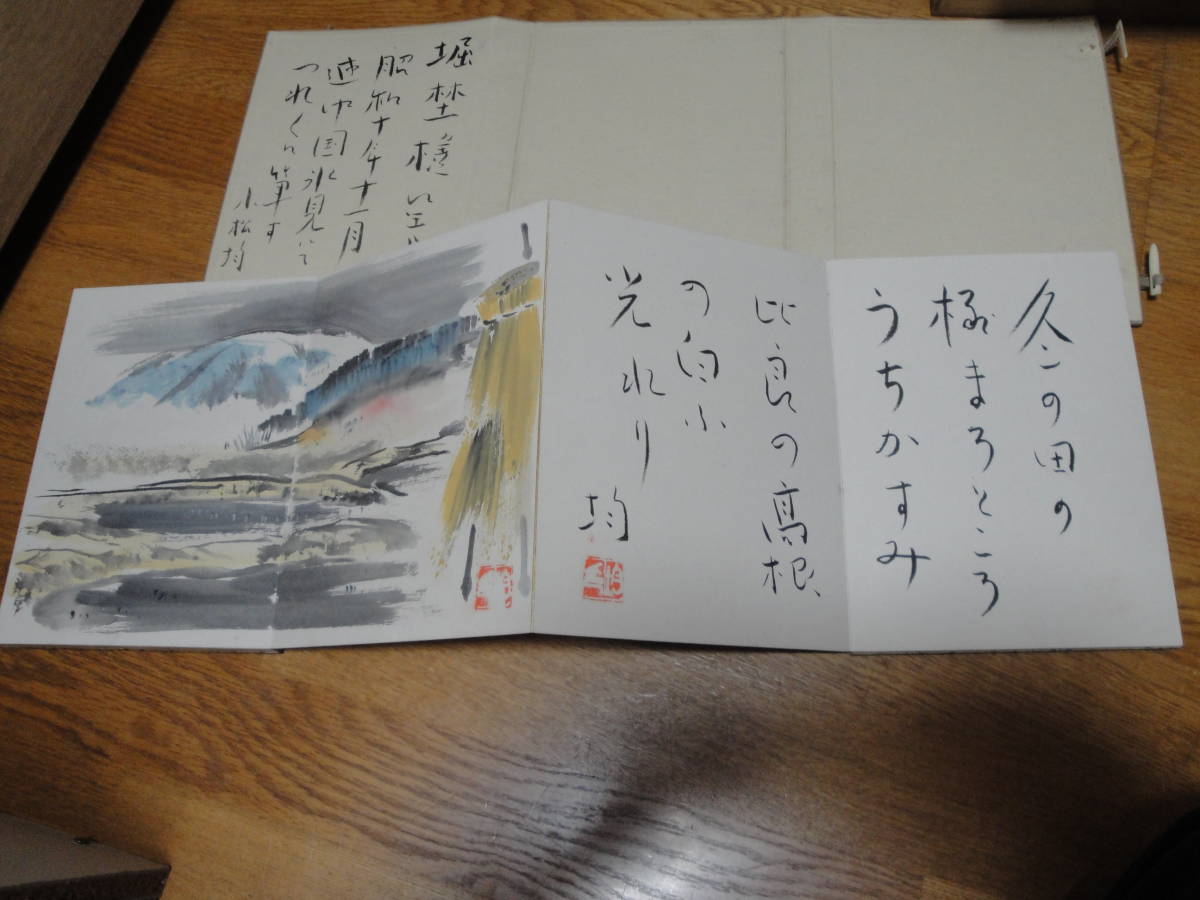 堀埜様
昭和十年十一月
中国氷見にて
つれ〱に筆す
小松均
冬の田の
極まるところ
うちかすみ
比良の高根
の白ふ
光れり
均